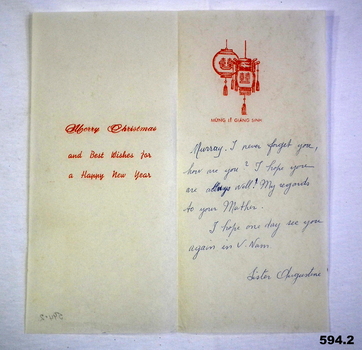 Merry Christmas
and Best Wishes for
a Happy New Year
MỪNG LỄ GIÁNG SINH
Murray, I never forget you,
how are you? I hope you
are always well! My regards
to your Mother.
I hope one day see you
again in V. Nam
Sister Augustine
594.2